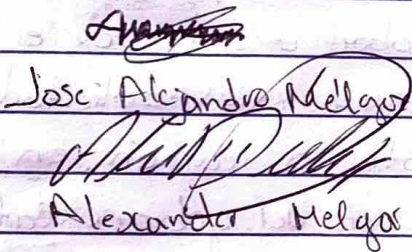 Jose Alejandro Melgar
Alexander Melgar